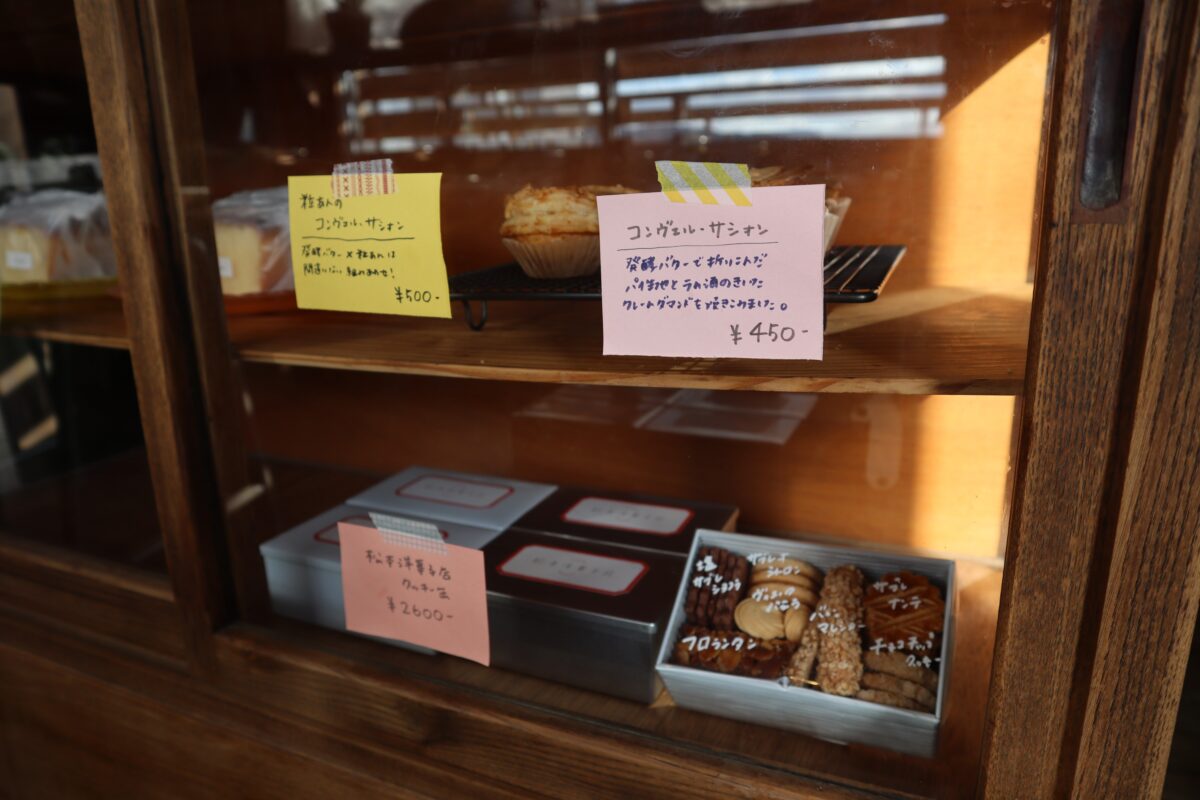 粒あんの
コンヴェル・サシオン
発酵バター×粒あんは
間違いない組み合わせ!
¥500-
コンヴェル・サシオン
発酵バターで折りこんだ
パイ生地とラム酒のきいた
クレームダマンドを焼きこみました。
¥450-
松本洋菓子店
クッキー缶
¥2600-
塩
サブレ
ショコラ
サブレ
シトロン
バニラ
サブレ
フロランタン
チョコチップ
クッキー